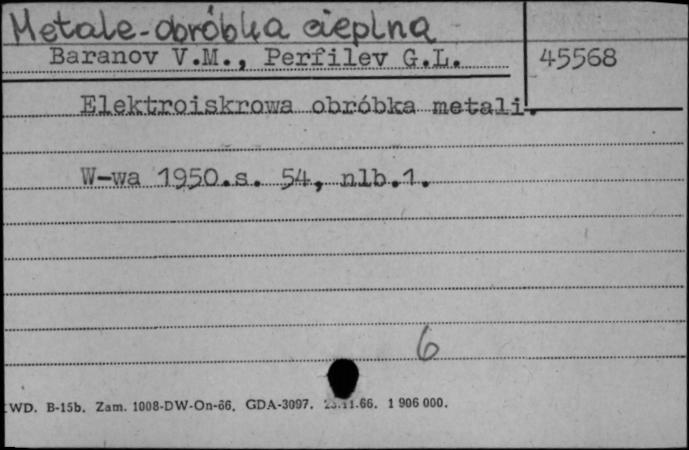 Metale-obróbka cieplna
Baranov V.M., Perfilev G.L.
45568
Elektroiskrowa obróbka metali.
W-wa 1950.s. 54, nlb.1.
6
WD. B-15b. Zam. 1008-DW-On-66. GDA-3097. 23.11.66. 1 906 000.